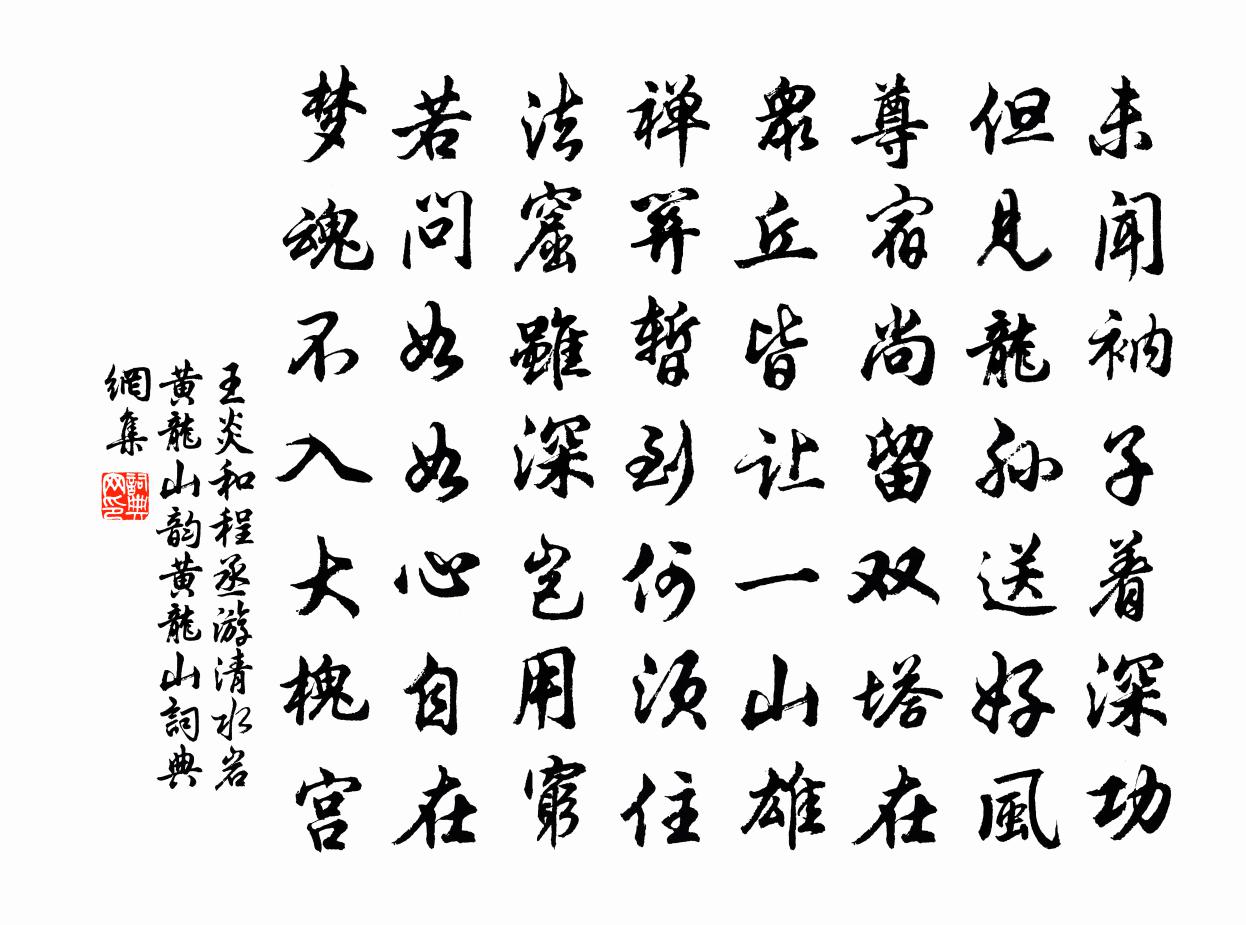 未闻衲子着深功
但见龍孙送好風
尊宿尚留双塔在
眾丘皆让一山雄
禅関暂到何须住
法窟雖深岂用窮
若问如如心自在
梦魂不入大槐宫
王炎和程丞游清水岩
黄龍山韵黄龍山詞典
網集
詞典网印